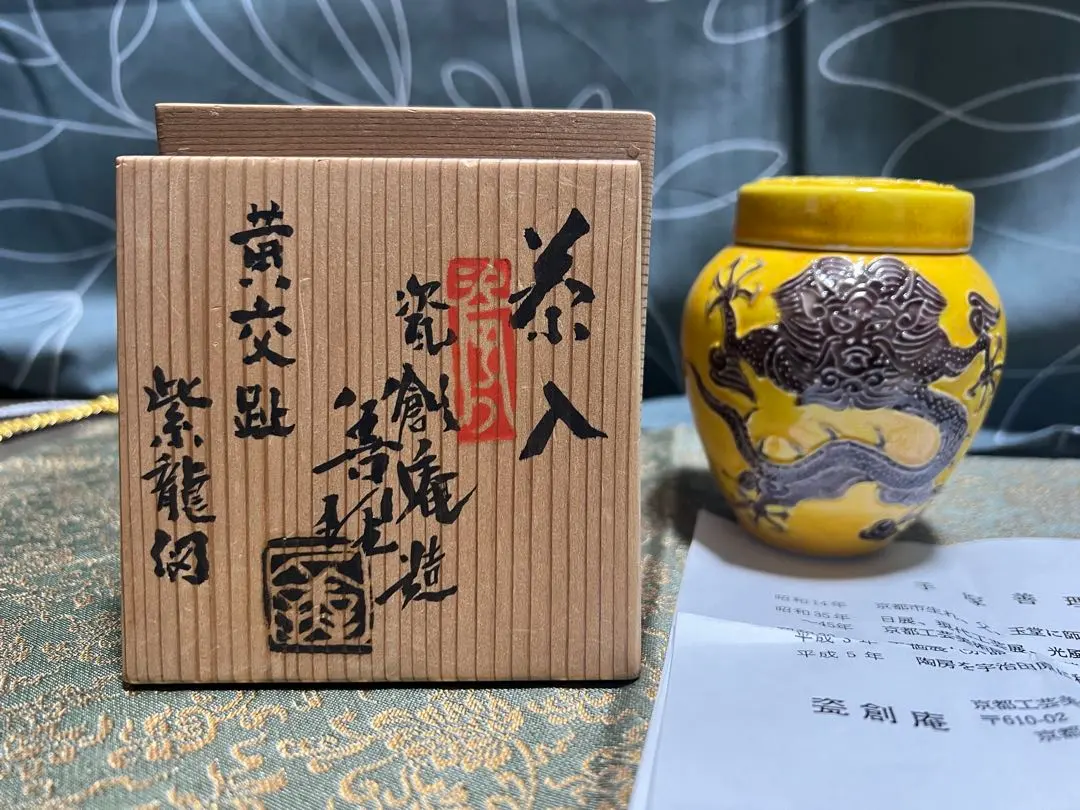 茶入
瓷創庵造
善理
黄交趾
紫龍
善理
昭和14年 京都市生れ
昭和35年 日展、現代
~45年 京都工芸美術展、光風
父、玉堂に師
平成5年 陶房を宇治田原
瓷創庵
京都工芸美
〒610-02
京都